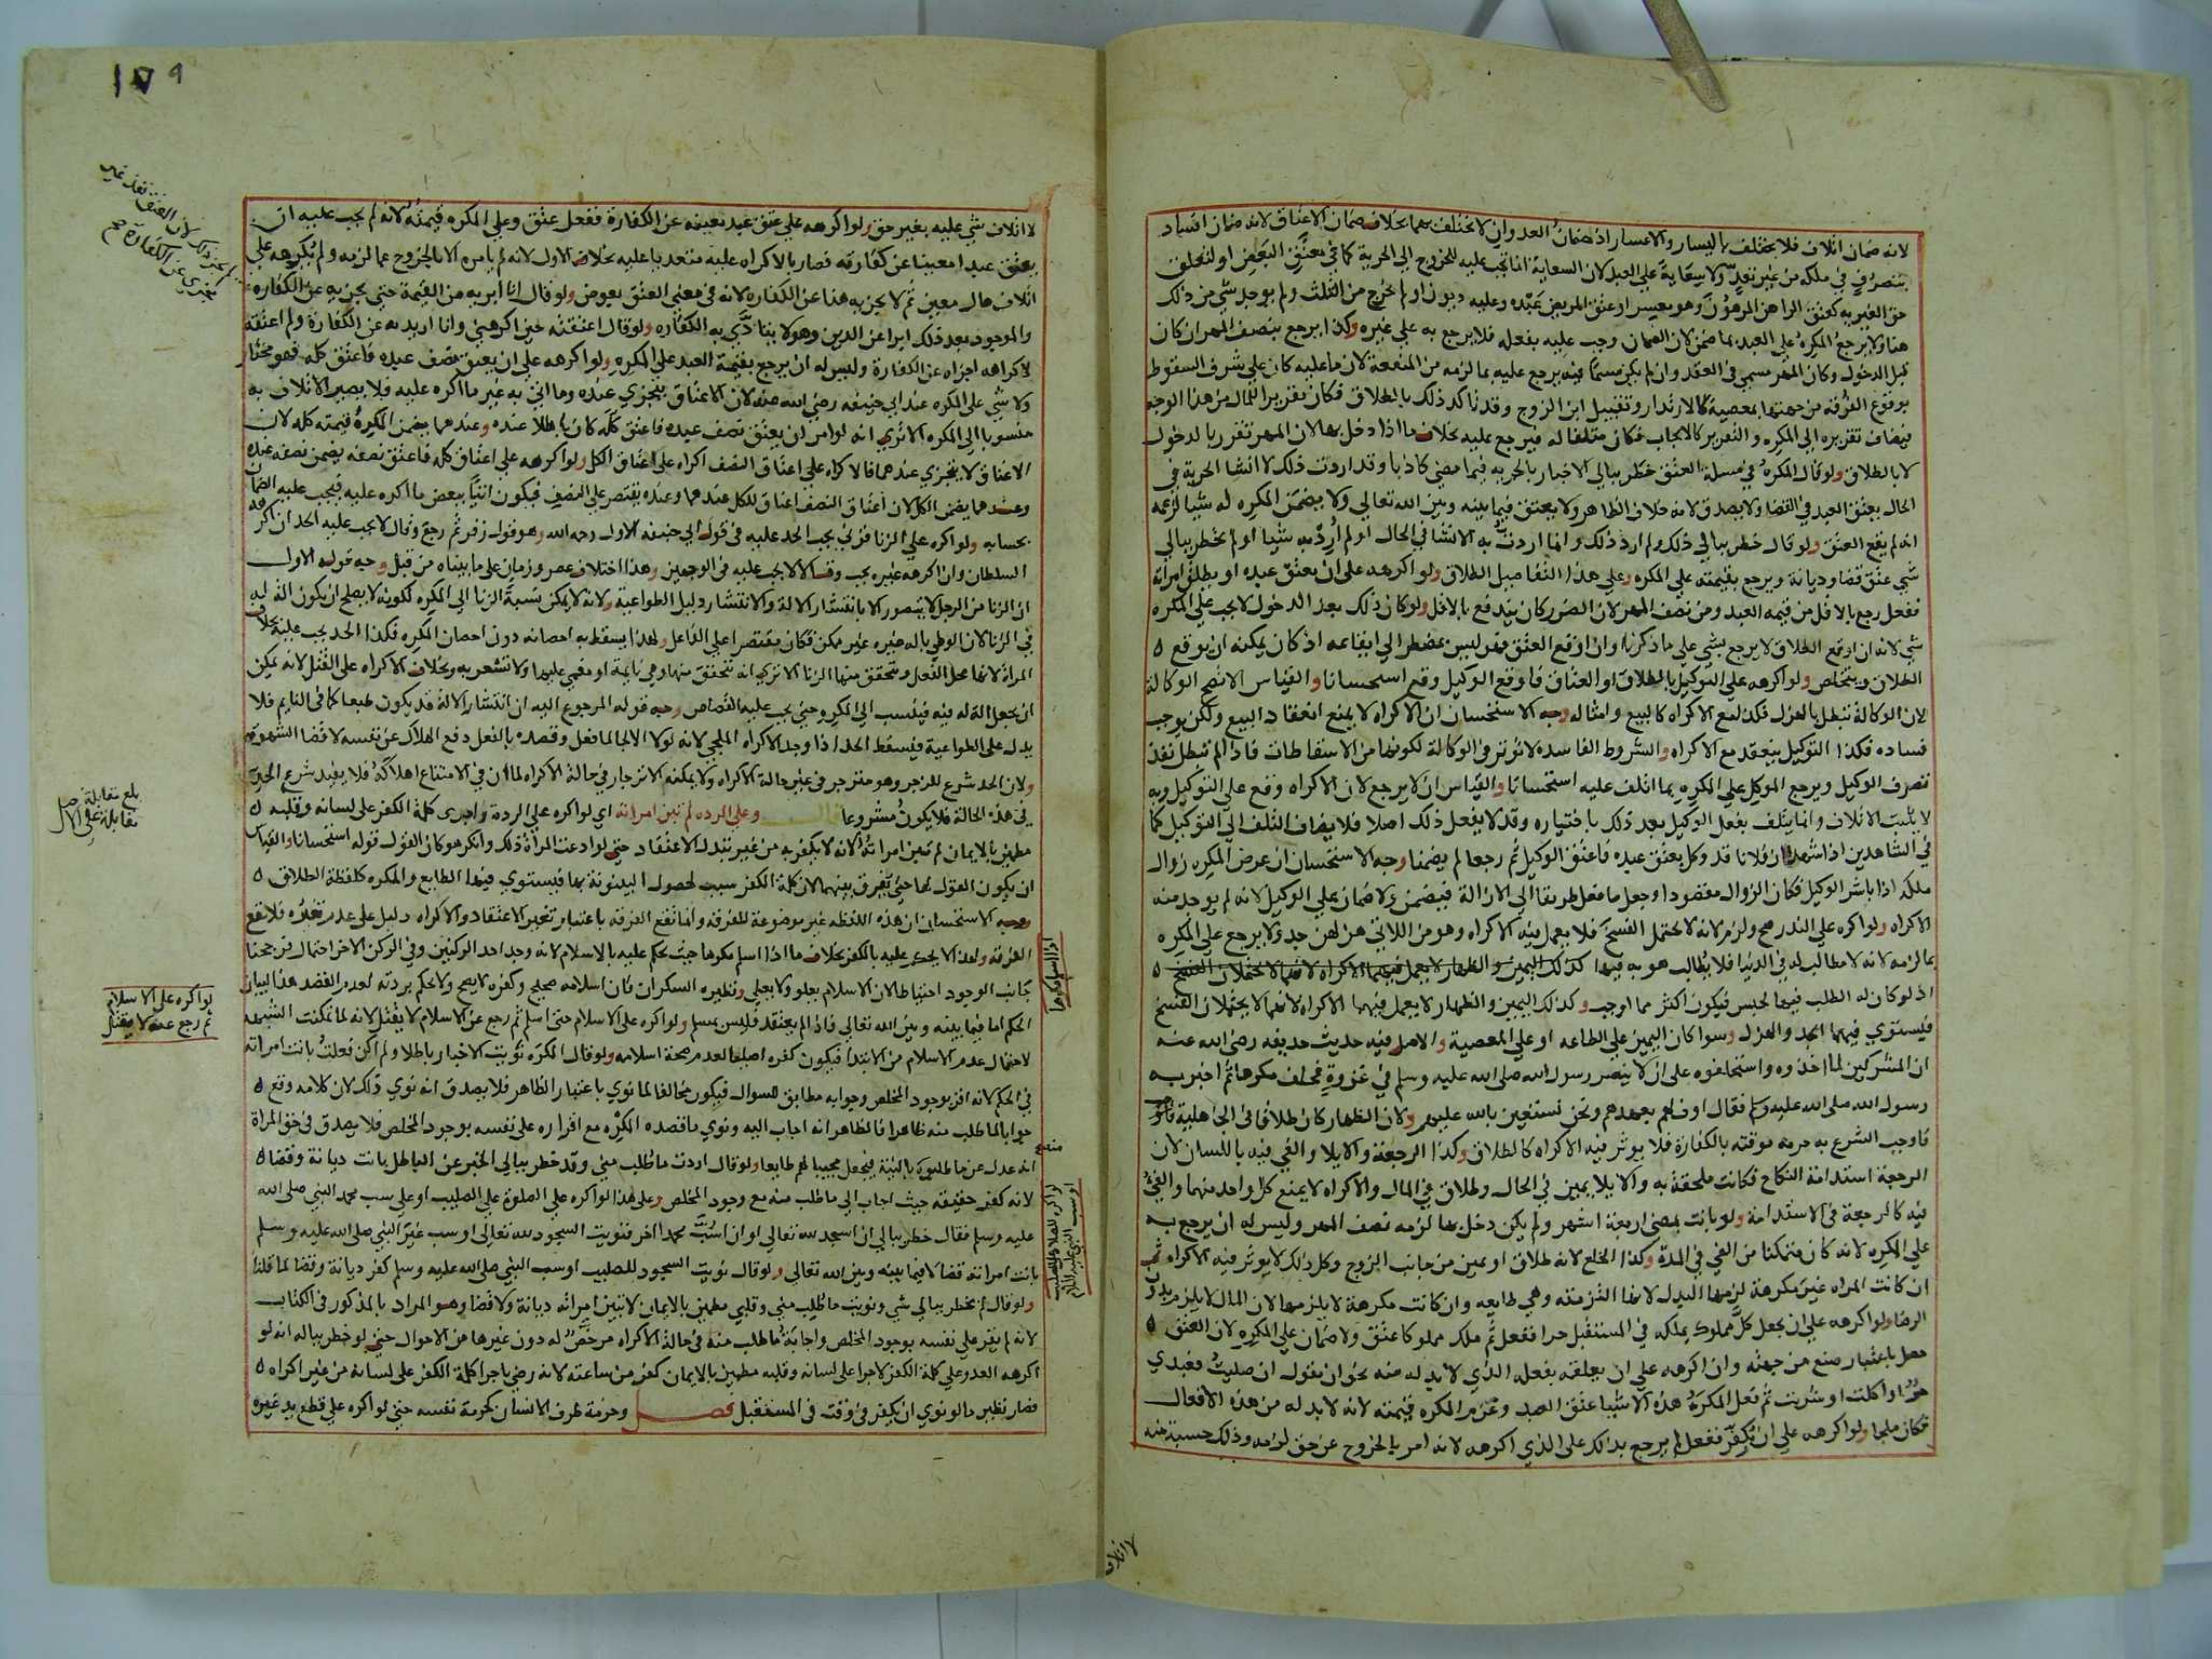 لانه ضمان اتلاف فلا يختلف باليسار والاعسار اذ ضمان العدوان لا يختلف بهما بخلاف ضمان الاعتاق لانه ضمان افساد
بتصرف في ملكه من غير تعد ولا سعاية على العبد لان السعاية انما تجب عليه للخروج الى الحرية كما في معتق البعض او لتعلق
حق الغير به كعتق الراهن المرهون وهو معسر او عتق المريض عبده وعليه ديون او لم يخرج من الثلث ولم يوجد شي من ذلك
هنا ولا يرجع المكره على العبد بما ضمن لان الضمان وجب عليه بفعله فلا يرجع به على غيره وكذا يرجع بنصف المهر ان كان
قبل الدخول وكان المهر مسمي في العقد وان لم يكن مسما فيه يرجع عليه بما لزمه من المتعة لان ما عليه كان على شرف السقوط
بوقوع الفرقة من جهتها بمعصية كالارتداد وتقبيل ابن الزوج وقد تاكد ذلك بالطلاق فكان تقرير اللمال من هذا الوجه
فيضاف تقريره الى المكره والتقرير كالايجاب فكان متلفا له فيرجع عليه بخلاف ما اذا دخل بها لان المهر تقرر بالدخول
لا بالطلاق ولو قال المكره في مسلة العتق خطر ببالي الاخبار بالحرية فيما مضي كاذبا وقد اردت ذلك لا انشا الحرية في
الحال يعتق العبد في القضا ولا يصدق لانه خلاف الظاهر ولا يعتق فيما بينه وبين الله تعالى ولا يضمن المكره له شيا لزعمه
انه لم يقع العتق ولو قال خطر ببالي ذلك ولم ارد ذلك وانما اردت به الانشا في الحال او لم ارد به شيا او لم يخطر ببالي
شي عتق قضا وديانة ويرجع بقيمته على المكره وعلى هذا التفاصيل الطلاق ولو اكرهه على ان يعتق عبده او يطلق امراته
ففعل رجع بالاقل من قيمة العبد ومن نصف المهر لان الضرر كان يندفع بالاقل ولو كان ذلك بعد الدخول لا يجب على المكره
شي لانه ان اوقع الطلاق لا يرجع بشي على ما ذكرنا وان اوقع العتق فهو ليس بمضطر الى ايقاعه اذ كان يمكنه ان يوقع
الطلاق ويتخلص ولو اكرهه على التوكيل بالطلاق او العتاق فاوقع الوكيل وقع استحسانا والقياس الا تصح الوكالة
لان الوكالة تبطل بالهزل فكذا مع الاكراه كالبيع وامثاله وجه الاستحسان ان الاكراه لا يمنع انعقاد البيع ولكن يوجب
فساده فكذا التوكيل ينعقد مع الاكراه والشروط الفاسدة لا تؤثر في الوكالة لكونها من الاسقاطات فاذا لم تبطل نفذ
تصرف الوكيل ويرجع الموكل على المكره بما اتلف عليه استحسانا والقياس ان لا يرجع لان الاكراه وقع على التوكيل وبه
لا يثبت الاتلاف وانما يتلف بفعل الوكيل بعد ذلك باختياره وقد لا يفعل ذلك اصلا فلا يضاف التلف الى التوكيل كما
في الشاهدين اذا شهدا ان فلانا قد وكل بعتق عبده فاعتق الوكيل ثم رجعا لم يضمنا وجه الاستحسان ان غرض المكره زوال
ملكه اذا باشر الوكيل فكان الزوال مقصودا وجعل ما فعل طريقا الى الازالة فيضمن ولا ضمان على الوكيل لانه لم يوجد منه
الاكراه ولو اكره على النذر صح ولزم لانه لا يحتمل الفسخ فلا يعمل فيه الاكراه وهو من اللاتي هزلهن جد ولا يرجع على المكره
بما لزمه لانه لا مطالب له في الدنيا فلا يطالب هو به فيها كذلك اليمين والظهار لا يعمل فيهما الاكراه لانهما لا يحتملان الفسخ
اذ لو كان له الطلب فيها لحبس فيكون اكثر مما اوجب وكذلك اليمين والظهار لا يعمل فيهما الاكراه لانهما لا يحتملان الفسخ
فيستوي فيهما الجد والهزل وسوا كان اليمين على الطاعه او على المعصية والاصل فيه حديث حذيفه رضي الله عنه
ان المشركين لما اخذوه واستحلفوه على ان لا ينصر رسول الله صلى الله عليه وسلم في غزوة فحلف مكرها ثم اخبر به
رسول الله صلى الله عليه وسلم فقال اوف لهم بعهدهم ونحن نستعين بالله عليهم ولان الظهار كان طلاقا في الجاهلية
فاوجب الشرع به حرمة موقتة بالكفارة فلا يوثر فيه الاكراه كالطلاق وكذا الرجعة والايلا والفي فيه باللسان لان
الرجعة استدامة النكاح فكانت ملحقة به والايلا يمين في الحال وطلاق في المال والاكراه لا يمنع كل واحد منهما والفي
فيه كالرجعة في الاستدامة ولو بانت بمضي اربعة اشهر ولم يكن دخل بها لزمه نصف المهر وليس له ان يرجع به
على المكره لانه كان متمكنا من الفي في المدة وكذا الخلع لانه طلاق او يمين من جانب الزوج وكل ذلك لا يوثر فيه الاكراه ثم
ان كانت المراه غير مكرهة لزمها البدل لانها التزمته وهي طايعه وان كانت مكرهة لا يلزمها لان المال لا يلزم بدون
الرضا ولو اكرهه على ان يجعل كل مملوك يملكه في المستقبل حرا ففعل ثم ملك مملوكا عتق ولا ضمان على المكره لان العتق
حصل باعتبار صنع من جهته وان اكرهه على ان يعلقه بفعله الذي لا بد له منه نحو ان يقول ان صليت فعبدي
حر او اكلت او شربت ثم فعل المكره هذه الاشيا عتق العبد وغرم المكره قيمته لانه لا بد له من هذه الافعال
فكان ملجا ولو اكرهه على ان يكفر ففعل لم يرجع بذلك على الذي اكرهه لانه امر بالخروج عن حق لزمه وذلك حسبة منه
لا اتلاف
١٧٩
لا اتلاف شي عليه بغير حق ولو اكرهه على عتق عبد بعينه عن الكفارة ففعل عتق وعلى المكره قيمته لانه لم يجب عليه ان
يعتق عبدا معينا عن كفارته فصار بالاكراه عليه متعديا عليه بخلاف الاول لانه لم يامره الا بالخروج عما لزمه ولم يكرهه على
اتلاف مال معين ثم لا يجزيه هذا عن الكفاره لانه في معنى العتق بعوض ولو قال انا ابريه من القيمة حتى يجزيه عن الكفاره
والموجود بعد ذلك ابرا عن الدين وهو لا يتادي به الكفاره ولو قال اعتقته حين اكرهني وانا اريد به عن الكفارة ولم اعتقه
لاكراهه اجزاه عن الكفارة وليس له ان يرجع بقيمة العبد على المكره ولو اكرهه على ان يعتق نصف عبده فاعتق كله فهو مختار
ولا شي على المكره عند ابي حنيفه رضي الله عنه لان الاعتاق يتجزي عنده وما اتي به غير ما اكره عليه فلا يصير الاتلاف به
منسوبا الى المكره الا تري انه لو امر ان يعتق نصف عبده فاعتق كله كان باطلا عنده وعندهما يضمن المكره قيمته كله لان
الاعتاق لا يتجزي عندهما فالاكراه على اعتاق النصف اكراه على اعتاق الكل ولو اكرهه على اعتاق كله فاعتق نصفه يضمن نصفه عنده
وعندهما يضمن الكل لان اعتاق النصف اعتاق للكل عندهما وعنده يقتصر على النصف فيكون اتيا ببعض ما اكره عليه فيجب عليه الضمان
بحسابه ولو اكره على الزنا فزني يجب الحد عليه في قول ابي حنيفه الاول رحمه الله وهو قول زفر ثم رجع وقال لا يجب عليه الحد ان اكرهه
السلطان وان اكرهه غيره يجب وقالا لا يجب عليه في الوجهين وهذا اختلاف عصر وزمان على ما بيناه من قبل وجه قوله الاول
ان الزنا من الرجل لا يتصور الا بانتشار الالة والانتشار دليل الطواعية ولانه لا يمكن نسبة الزنا الى المكره لكونه لا يصلح ان يكون الة له
في الزنا لان الوطي بالة غيره غير ممكن فكان مقتصرا على الفاعل ولهذا يسقط به احصانه دون احصان المكره فكذا الحد يجب عليه بخلاف
المراة لانها محل الفعل ويتحقق منها الزنا الا تري انه تتحقق منها وهي نايمة او مغمي عليها ولا تشعر به وبخلاف الاكراه على القتل لانه يمكن
ان يجعل الة له فيه فينسب الى المكره حتى يجب عليه القصاص وجه قوله المرجوع اليه ان انتشار الالة قد يكون طبعا كما في النايم فلا
يدل على الطواعية فيسقط الحد اذا وجد الاكراه الملجي لانه لولا الالجا لما فعل وقصده بالفعل دفع الهلاك عن نفسه لا قضا الشهوة
ولان الحد شرع للزجر وهو منزجر في غير حالة الاكراه ولا يمكنه الانزجار في حالة الاكراه لما ان في الامتناع اهلاكه فلا يفيد شرع الحد
في هذه الحالة فلا يكون مشروعا قال وعلى الرده لم تبن امراته اي لو اكره على الردة واجرى كلمة الكفر على لسانه وقلبه
مطمئن بالايمان لم تبن امراته لانه لا يكفر به من غير تبدل الاعتقاد حتى لو ادعت المراة ذلك وانكر هو كان القول قوله استحسانا والقياس
ان يكون القول لها حتى يفرق بينهما لان كلمة الكفر سبب لحصول البينونة بها فيستوي فيها الطايع والمكره كلفظة الطلاق
وجه الاستحسان ان هذه اللفظه غير موضوعة للفرقه وانما تقع الفرقه باعتبار تغير الاعتقاد والاكراه دليل على عدم تغيره فلا تقع
الفرقه ولهذا لا يحكم عليه بالكفر بخلاف ما اذا اسلم مكرها حيث يحكم عليه بالاسلام لانه وجد احد الركنين وفي الركن الاخر احتمال فرجحنا
جانب الوجود احتياطا لان الاسلام يعلو ولا يعلى ونظيره السكران فان اسلامه صحيح وكفره لا يصح ولا يحكم بردته لعدم القصد هذا لبيان
الحكم اما فيما بينه وبين الله تعالى فاذا لم يعتقد فليس بمسلم ولو اكره على الاسلام حتى اسلم ثم رجع عن الاسلام لا يقتل لانه لما تمكنت الشبهه
لاحتمال عدم الاسلام من الابتدا فيكون كفره اصليا لعدم صحة اسلامه ولو قال المكره نويت الاخبار باطلا ولم اكن فعلت بانت امراته
في الحكم لانه اقر بوجود المخلص وجوابه مطابق للسوال فيكون مخالفا لما نوي باعتبار الظاهر فلا يصدق انه نوي ذلك لان كلامه وقع
جوابا لما طلب منه ظاهرا فالظاهر انه اجاب اليه ونوي ما قصده المكره مع اقراره على نفسه بوجود المخلص فلا يصدق في حق المراة
انه عدل عن ما طلبوه بالنية فيجعل مجيبا لهم طايعا ولو قال اردت ما طلب مني وقد خطر ببالي الخبر عن الباطل بانت ديانة وقضا
لانه كفر حقيقه حيث اجاب الى ما طلب منه مع وجود المخلص وعلى هذا لو اكره على الصلوة على الصليب او على سب محمد النبي صلى الله
عليه وسلم فقال خطر ببالي ان اسجد لله تعالى او ان اسب محمدا اخر فنويت السجود لله تعالى او سب غير النبي صلى الله عليه وسلم
بانت امراته قضا لا فيما بينه وبين الله تعالى ولو قال نويت السجود للصليب او سب النبي صلى الله عليه وسلم كفر ديانة وقضا لما قلنا
ولو قال لم يخطر ببالي شي ونويت ما طلب مني وقلبي مطمئن بالايمان لا تبين امراته ديانة ولا قضا وهو المراد بالمذكور في الكتاب
لانه لم يقر على نفسه بوجود المخلص واجابة ما طلب منه في حالة الاكراه مرخص له دون غيرها من الاحوال حتى لو خطر بباله انه لو
اكرهه العدو على كلمة الكفر لاجرا على لسانه وقلبه مطمئن بالايمان كفر من ساعته لانه رضي باجرا كلمة الكفر على لسانه من غير اكراه
فصار نظير ما لو نوي ان يكفر في وقت في المستقبل فصل وحرمة طرف الانسان كحرمة نفسه حتى لو اكره على قطع يد غيره
بلغ مقابلة
لو اكره على الاسلام
ثم رجع عنه لا يقتل
اذا اسلم مكرها